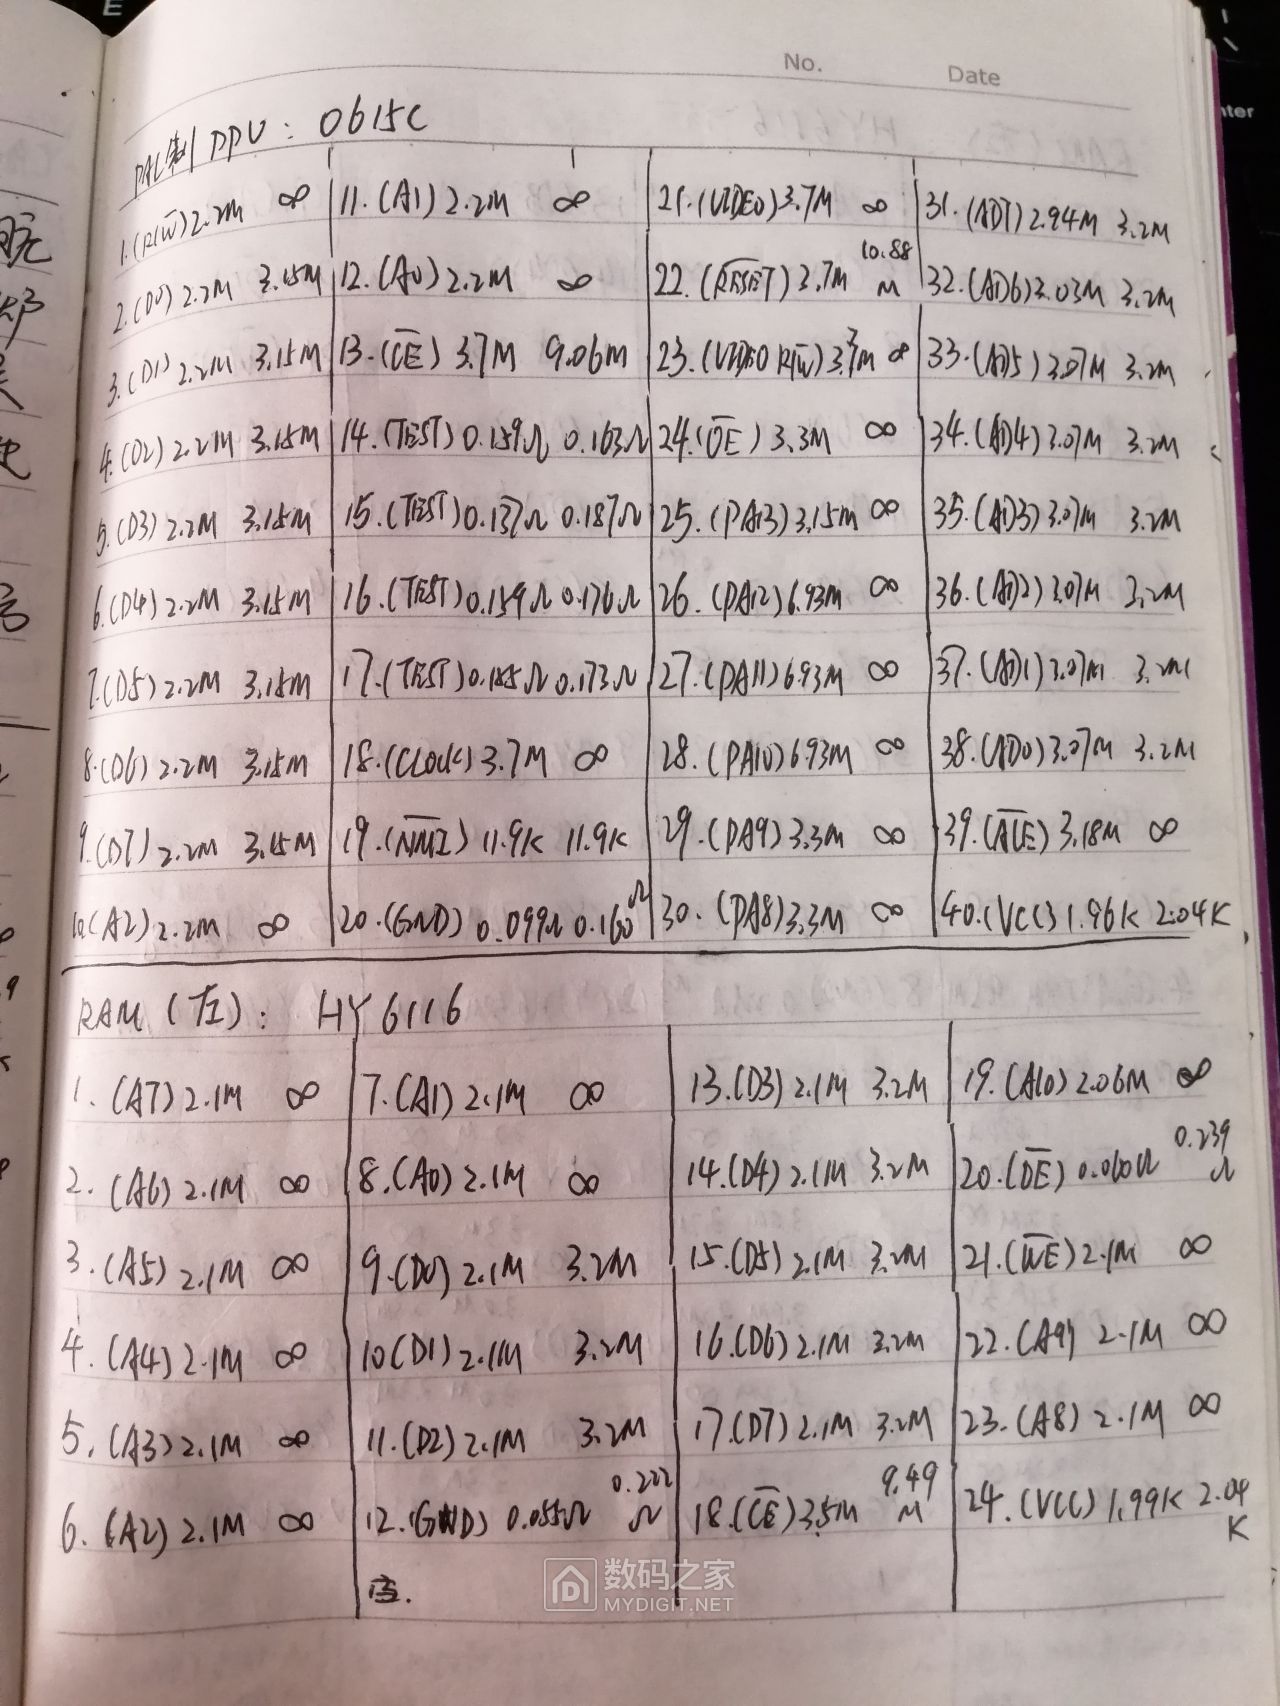 No.
Date
PAL制 PPU: 0615C
1.(R/W̅) 2.2M ∞
2.(D0) 2.2M 3.15M
3.(D1) 2.2M 3.15M
4.(D2) 2.2M 3.15M
5.(D3) 2.2M 3.15M
6.(D4) 2.2M 3.15M
7.(D5) 2.2M 3.15M
8.(D6) 2.2M 3.15M
9.(D7) 2.2M 3.15M
10.(A2) 2.2M ∞
11.(A1) 2.2M ∞
12.(A0) 2.2M ∞
13.(C̅E̅) 3.7M 9.06M
14.(TEST) 0.159Ω 0.163Ω
15.(TEST) 0.137Ω 0.187Ω
16.(TEST) 0.159Ω 0.176Ω
17.(TEST) 0.185Ω 0.173Ω
18.(CLOCK) 3.7M ∞
19.(N̅M̅I̅) 11.9K 11.9K
20.(GND) 0.099Ω 0.160Ω
21.(VIDEO) 3.7M ∞
22.(R̅E̅S̅E̅T̅) 3.7M 10.88M
23.(VIDEO R/W̅) 3.7M ∞
24.(O̅E̅) 3.3M ∞
25.(PA13) 3.15M ∞
26.(PA12) 6.93M ∞
27.(PA11) 6.93M ∞
28.(PA10) 6.93M ∞
29.(PA9) 3.3M ∞
30.(PA8) 3.3M ∞
31.(AD7) 2.94M 3.2M
32.(AD6) 3.03M 3.2M
33.(AD5) 3.07M 3.2M
34.(AD4) 3.07M 3.2M
35.(AD3) 3.07M 3.2M
36.(AD2) 3.07M 3.2M
37.(AD1) 3.07M 3.2M
38.(AD0) 3.07M 3.2M
39.(A̅L̅E̅) 3.18M ∞
40.(VCC) 1.96K 2.04K
RAM(左): HY6116
1.(A7) 2.1M ∞
2.(A6) 2.1M ∞
3.(A5) 2.1M ∞
4.(A4) 2.1M ∞
5.(A3) 2.1M ∞
6.(A2) 2.1M ∞
7.(A1) 2.1M ∞
8.(A0) 2.1M ∞
9.(D0) 2.1M 3.2M
10(D1) 2.1M 3.2M
11.(D2) 2.1M 3.2M
12.(GND) 0.055Ω 0.222Ω
13.(D3) 2.1M 3.2M
14.(D4) 2.1M 3.2M
15.(D5) 2.1M 3.2M
16.(D6) 2.1M 3.2M
17.(D7) 2.1M 3.2M
18.(C̅E̅) 3.5M 9.49M
19.(A10) 2.06M ∞
20.(O̅E̅) 0.060Ω 0.239Ω
21.(W̅E̅) 2.1M ∞
22.(A9) 2.1M ∞
23.(A8) 2.1M ∞
24.(VCC) 1.99K 2.04K
数码之家
MYDIGIT.NET